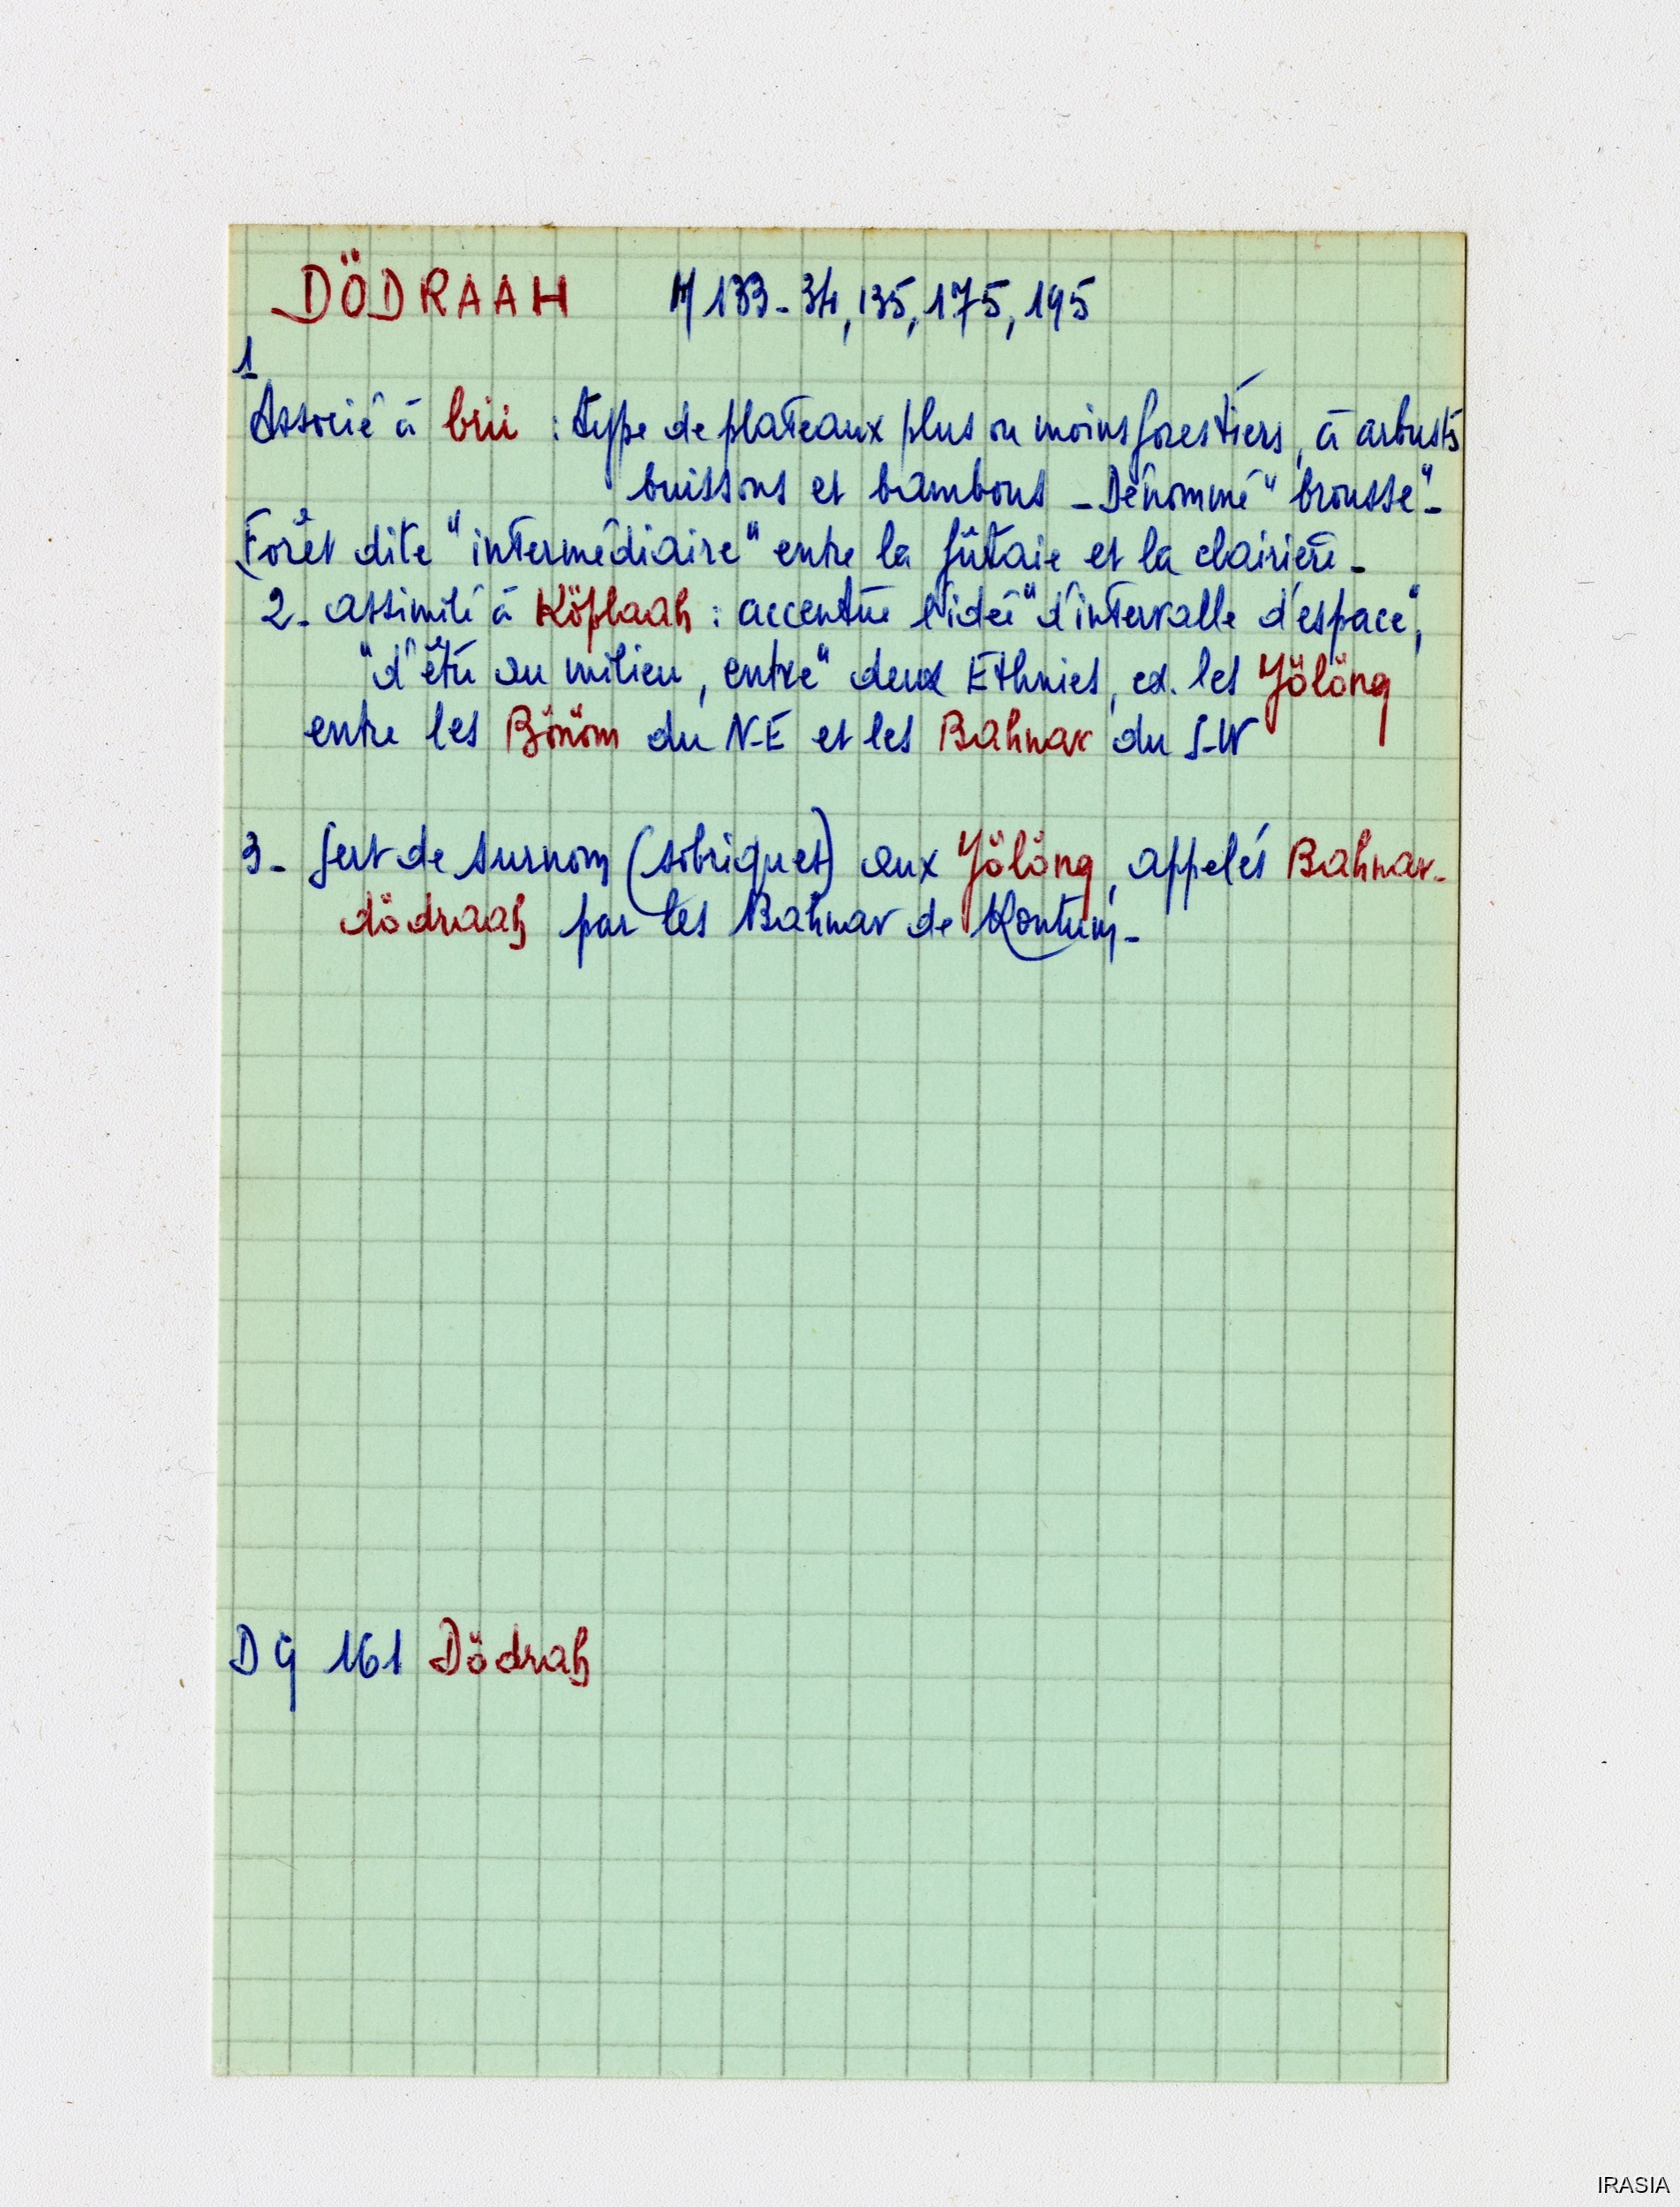 DÖDRAAH M 133-34, 135, 175, 195
1
Associé à brii : type de plateaux plus ou moins forestiers, à arbustes
buissons et bambous - Dénommé "brousse"-
Forêt dite "intermédiaire" entre la fûtaie et la clairière-
2- assimilé à Köplaah : accentue l'idée "d'intervalle d'espace",
"d'être au milieu, entre" deux Ethnies, ex. les Jölöng
entre les Bönöm du N-E et les Bahnar du S-W
3- sert de surnom (sobriquet) aux Jölöng, appelés Bahnar-
dödraah par les Bahnar de Kontum-
DG 161 Dödrah
IRASIA